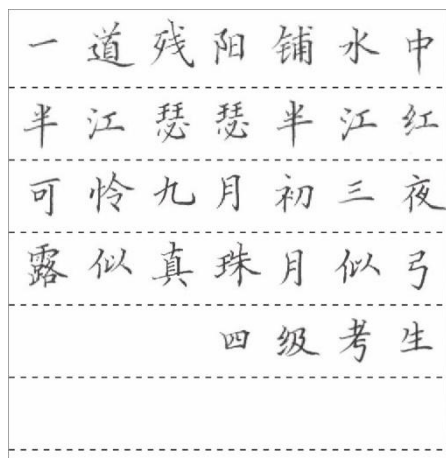 一道残阳铺水中
半江瑟瑟半江红
可怜九月初三夜
露似真珠月似弓
四级考生